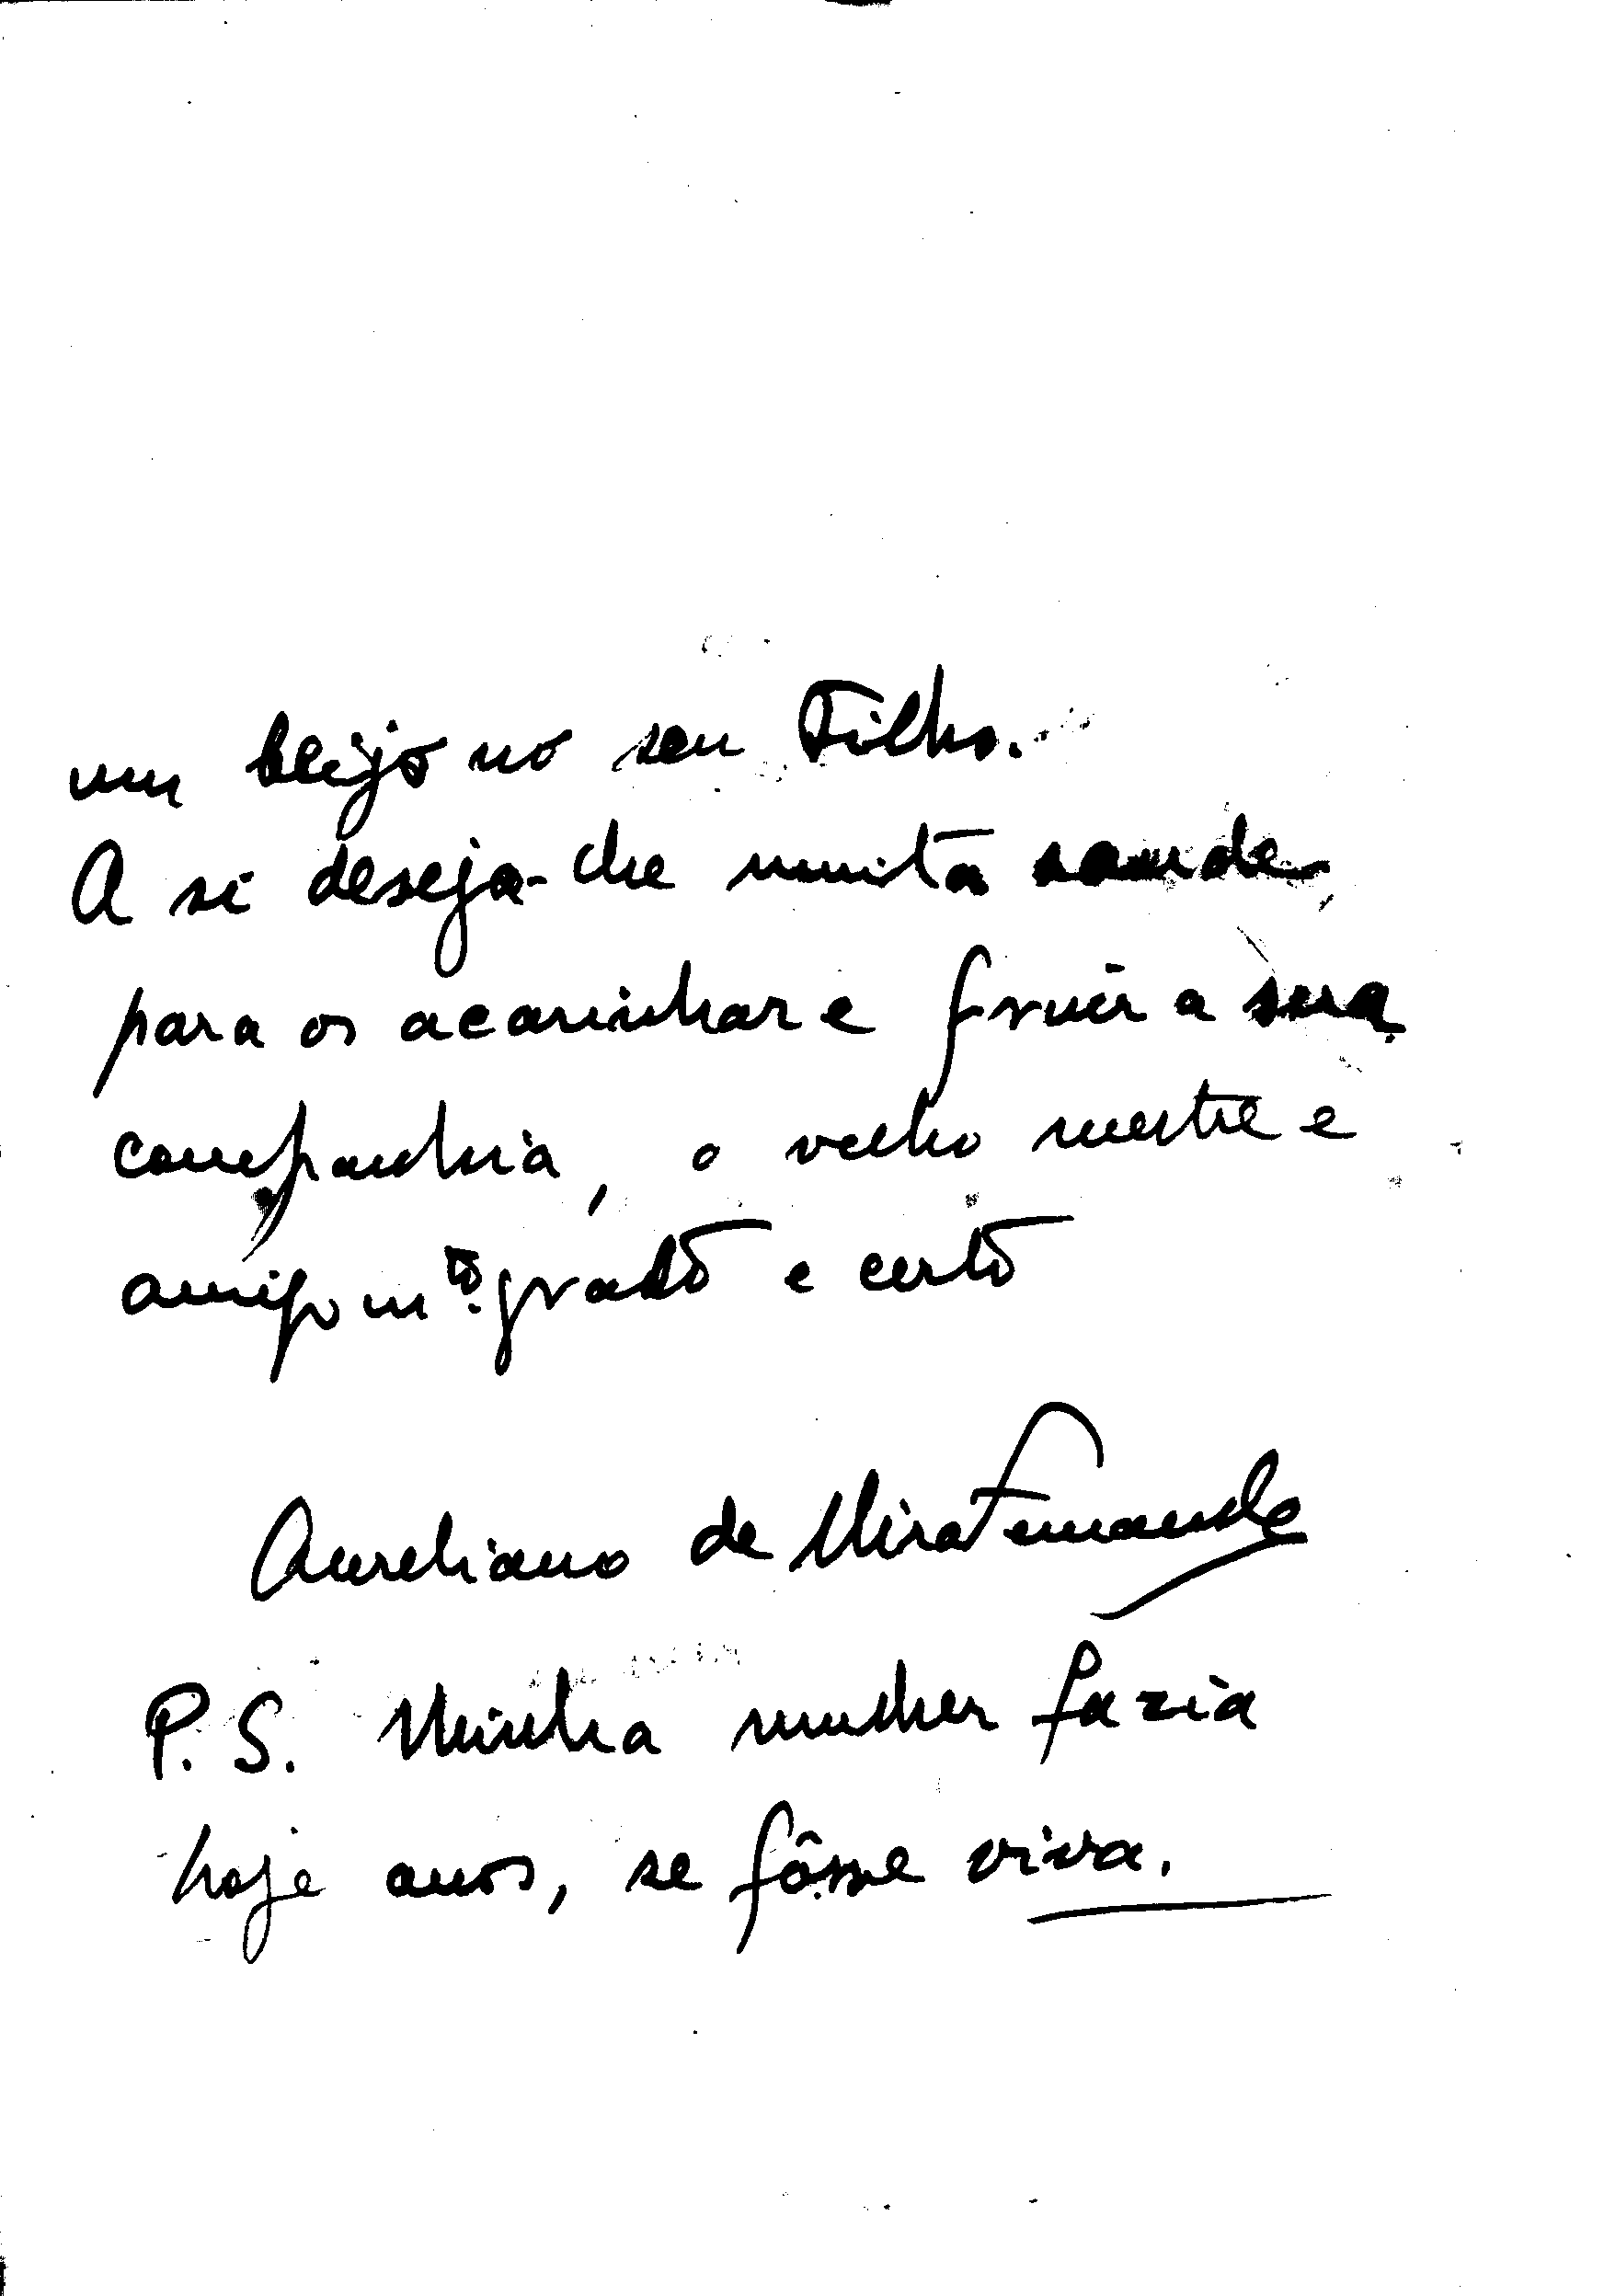 um beijo no seu Filho.
A si deseja-lhe muita saude,
para os acarinhar e fruir a sua
companhia, o velho mestre e
amigo m.to grato e certo
Aureliano de Mira Fernandes
P.S. Minha mulher fazia
hoje anos, se fôsse viva.